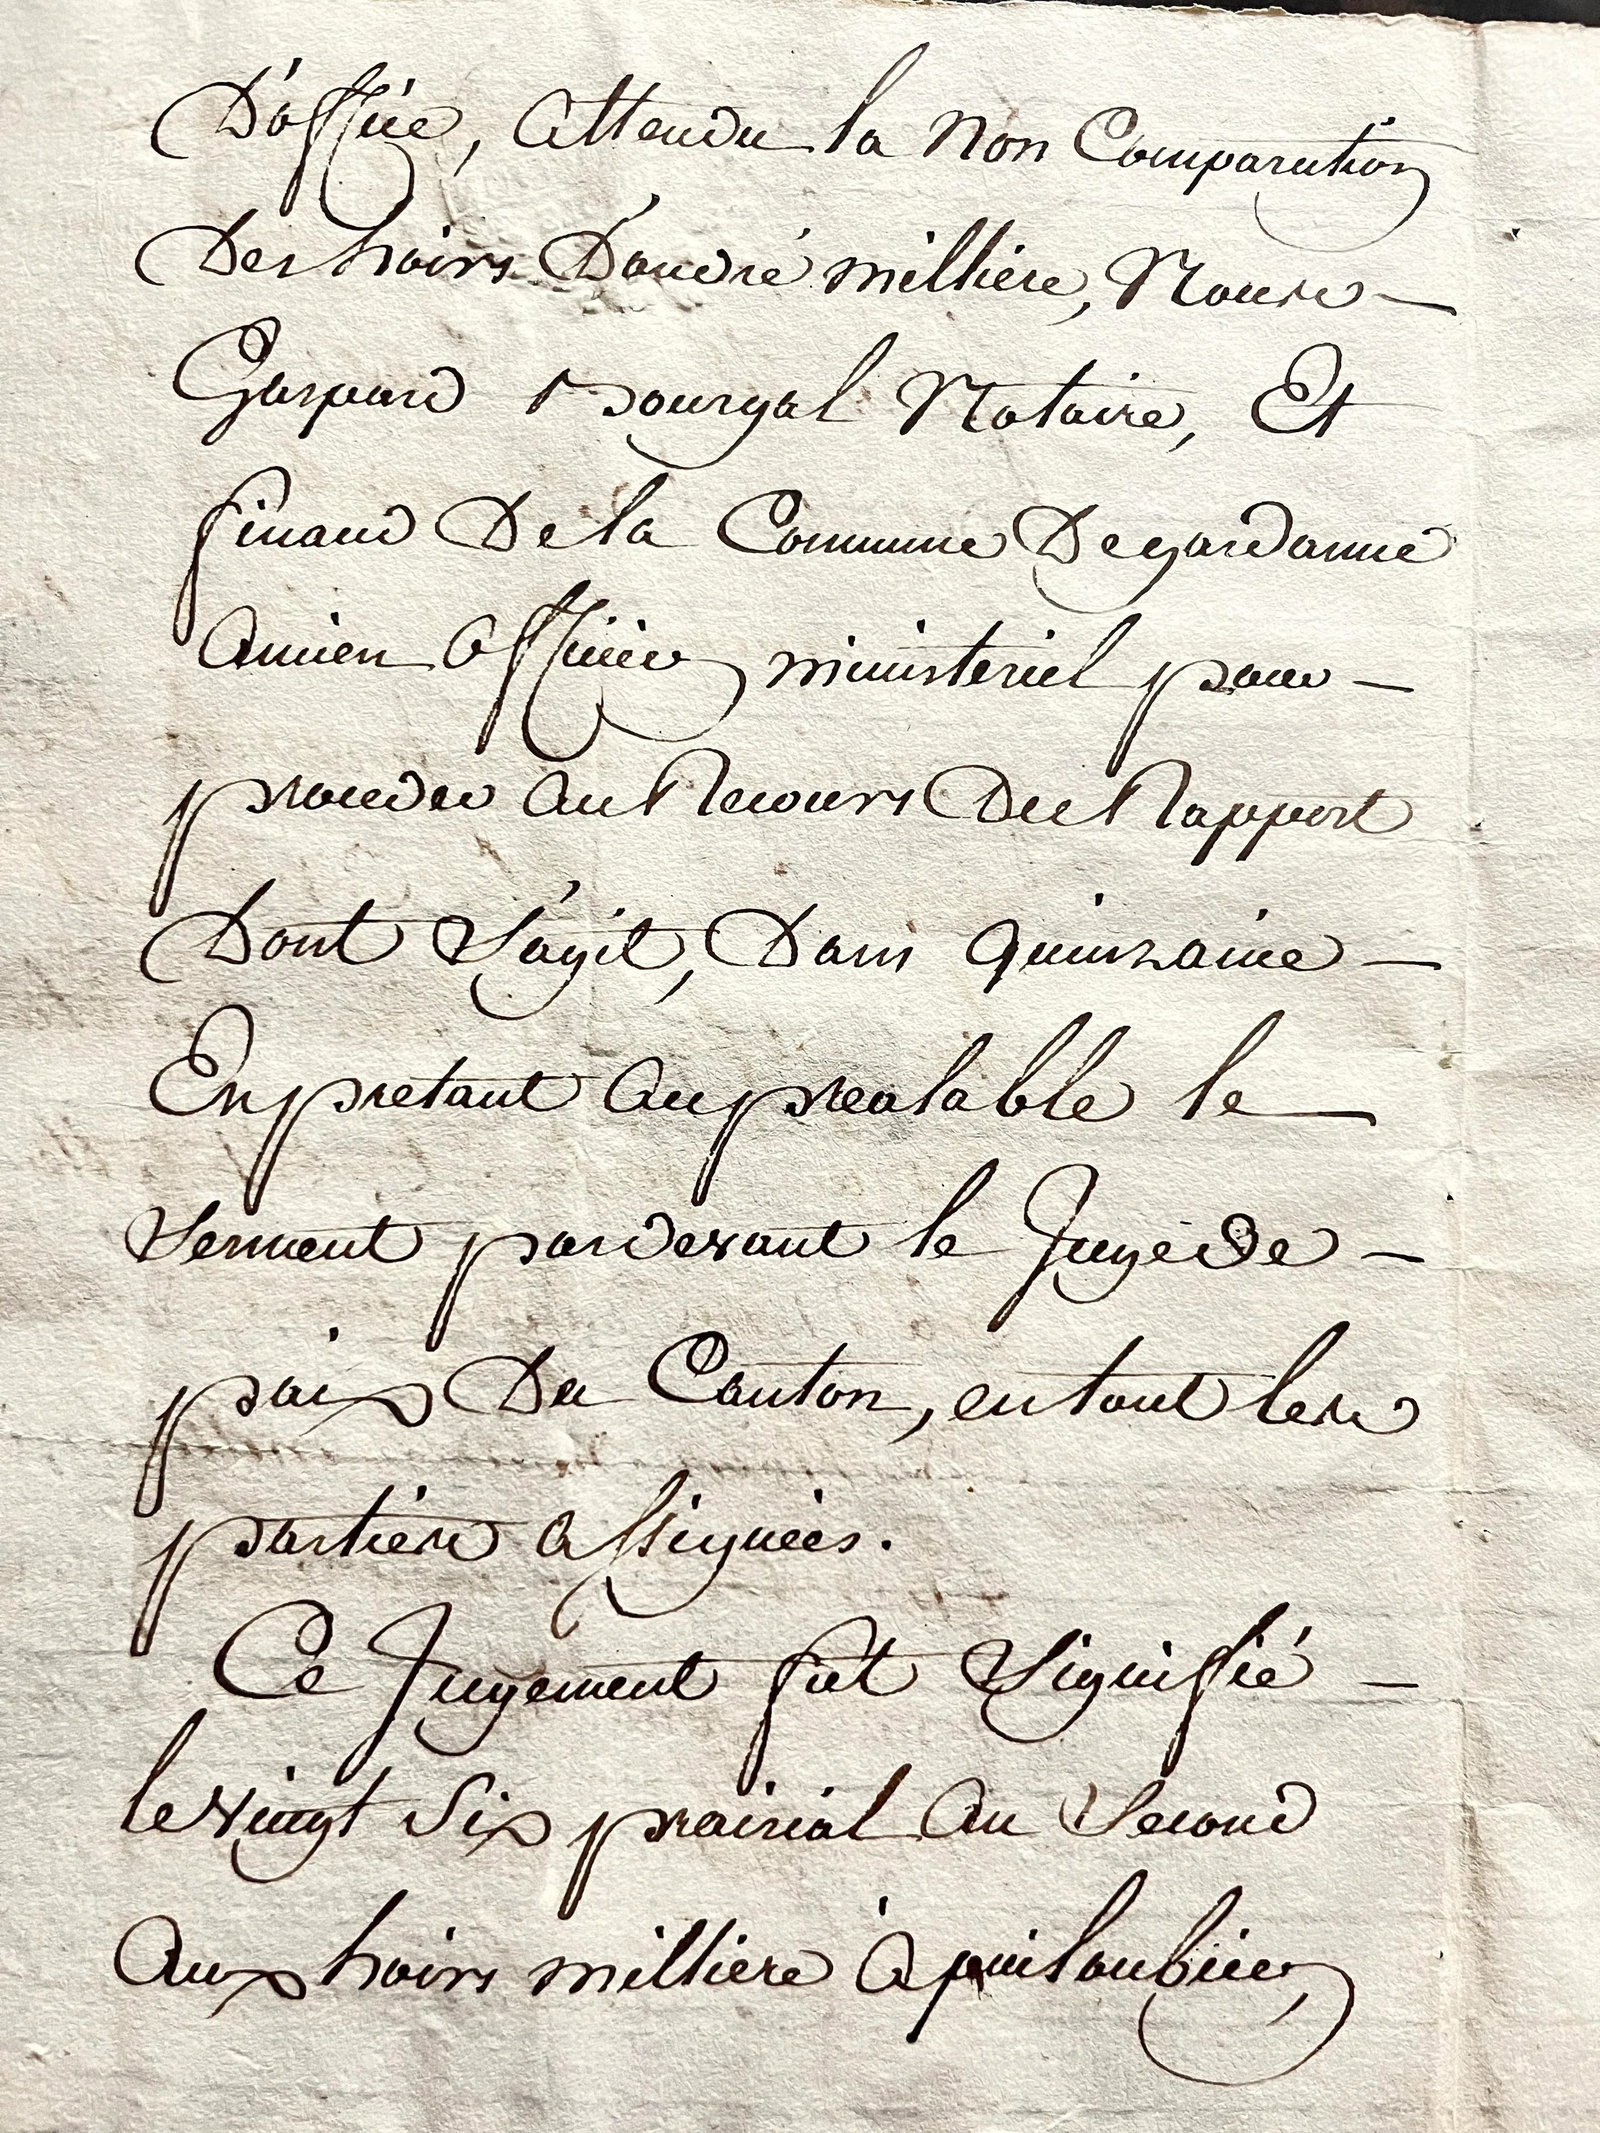 D'office, attendu la non Comparution
des hoirs D'andré milliere, Nous
Gaspard Bourgal Notaire, Et
finaud De la Commune De gardanne
ancien officier ministeriel pour
proceder au Recours Du Rapport
Dont S'agit, Dans quinzaine
En pretant au prealable le
Serment pardevant le Juge de
paix Du Canton, en tant les
parties assignées.
Ce Jugement fut Signiffié
le vingt Six prairial an Second
aux hoirs milliere à puiloubier,